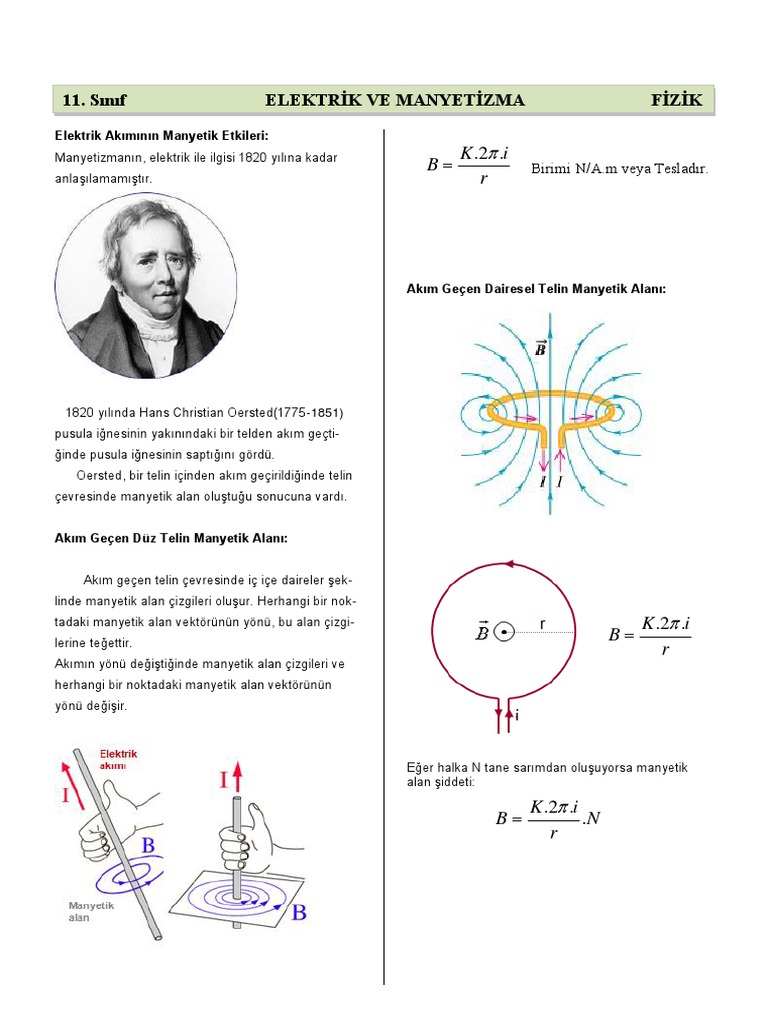 11. Sınıf ELEKTRİK VE MANYETİZMA FİZİK
Elektrik Akımının Manyetik Etkileri:
Manyetizmanın, elektrik ile ilgisi 1820 yılına kadar
anlaşılamamıştır.
1820 yılında Hans Christian Oersted(1775-1851)
pusula iğnesinin yakınındaki bir telden akım geçti-
ğinde pusula iğnesinin saptığını gördü.
Oersted, bir telin içinden akım geçirildiğinde telin
çevresinde manyetik alan oluştuğu sonucuna vardı.
Akım Geçen Düz Telin Manyetik Alanı:
Akım geçen telin çevresinde iç içe daireler şek-
linde manyetik alan çizgileri oluşur. Herhangi bir nok-
tadaki manyetik alan vektörünün yönü, bu alan çizgi-
lerine teğettir.
Akımın yönü değiştiğinde manyetik alan çizgileri ve
herhangi bir noktadaki manyetik alan vektörünün
yönü değişir.
Elektrik
akımı
I
B
Manyetik
alan
I
B
B = K.2π.i / r Birimi N/A.m veya Tesladır.
Akım Geçen Dairesel Telin Manyetik Alanı:
B⃗
I I
B⃗ r
i
B = K.2π.i / r
Eğer halka N tane sarımdan oluşuyorsa manyetik
alan şiddeti:
B = K.2π.i / r .N